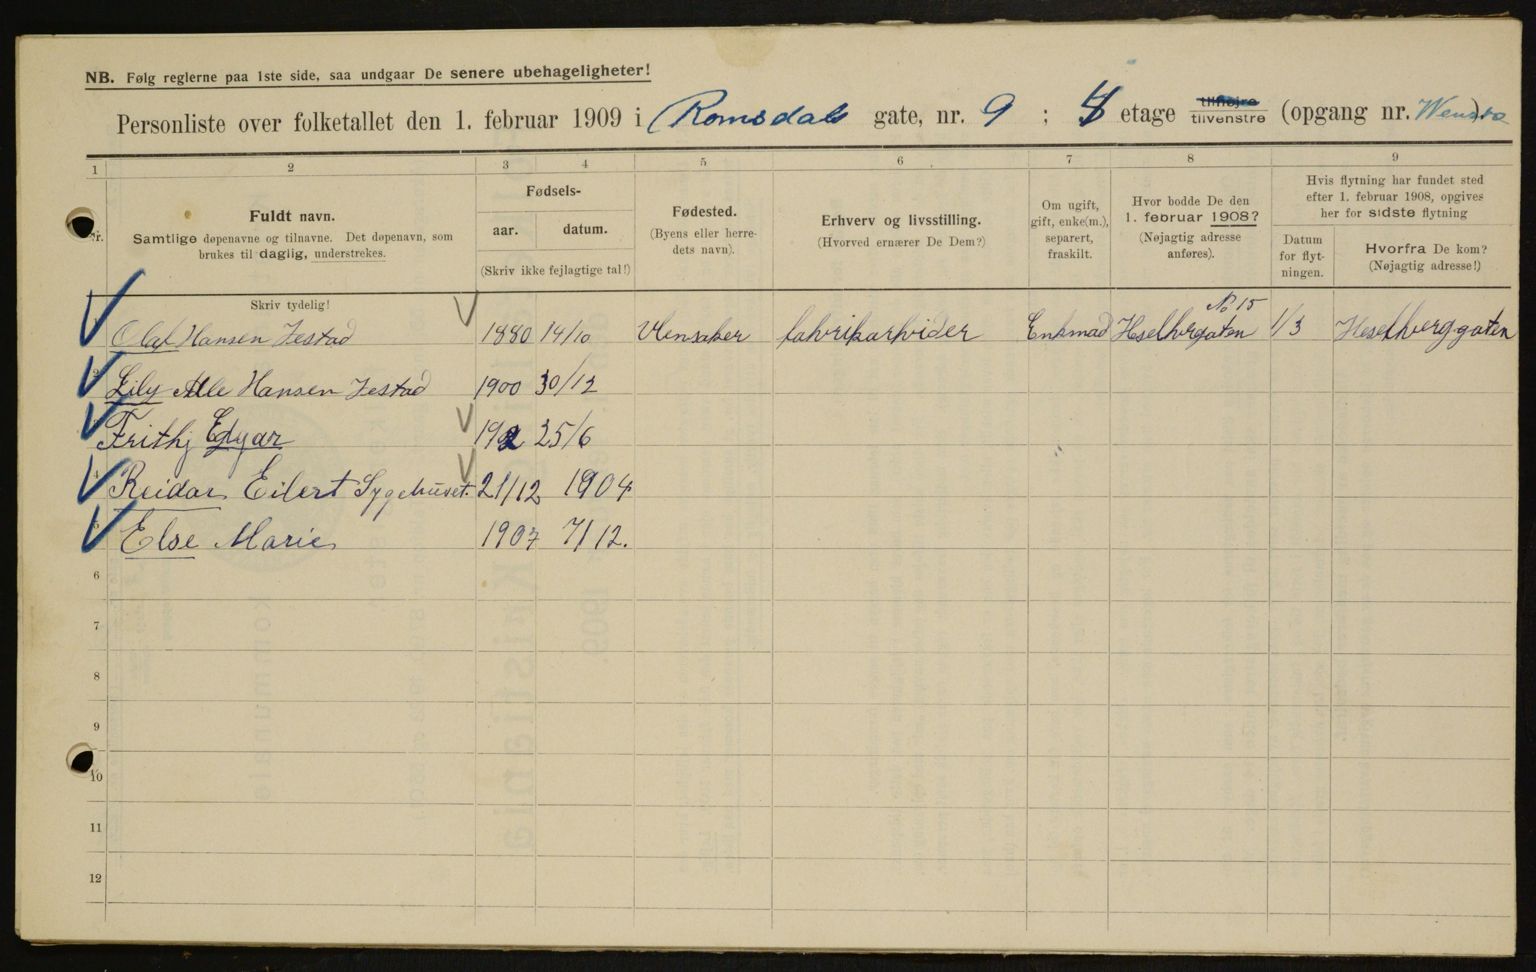 NB. Følg reglerne paa 1ste side, saa undgaar De senere ubehageligheter!
Personliste over folketallet den 1. februar 1909 i Romsdals gate, nr. 9 ; 4 etage tilhøjre tilvenstre (opgang nr. )
1 2 3 4 5 6 7 8 9
Nr.
Fuldt navn.
Samtlige døpenavne og tilnavne. Det døpenavn, som
brukes til daglig, understrekes.
Skriv tydelig!
Fødsels-
aar. datum.
(Skriv ikke fejlagtige tal!)
Fødested.
(Byens eller herre-
dets navn).
Erhverv og livsstilling.
(Hvorved ernærer De Dem?)
Om ugift,
gift, enke(m.),
separert,
fraskilt.
Hvor bodde De den
1. februar 1908?
(Nøjagtig adresse
anføres).
Hvis flytning har fundet sted
efter 1. februar 1908, opgives
her for sidste flytning
Datum
for flyt-
ningen.
Hvorfra De kom?
(Nøjagtig adresse!)
No 15
Olaf Hansen Zestad 1880 14/10 fabrikarbeider Enkmad Heselbergaten 1/3 Heselberggaten
2 Lily Hansen Zestad 1900 30/12
3 Frithj Edgar 1902 25/6
4 Reidar Eilert Sygehuset. 21/12 1904
5 Else Marie 1907 7/12.
6
7
8
9
10
11
12